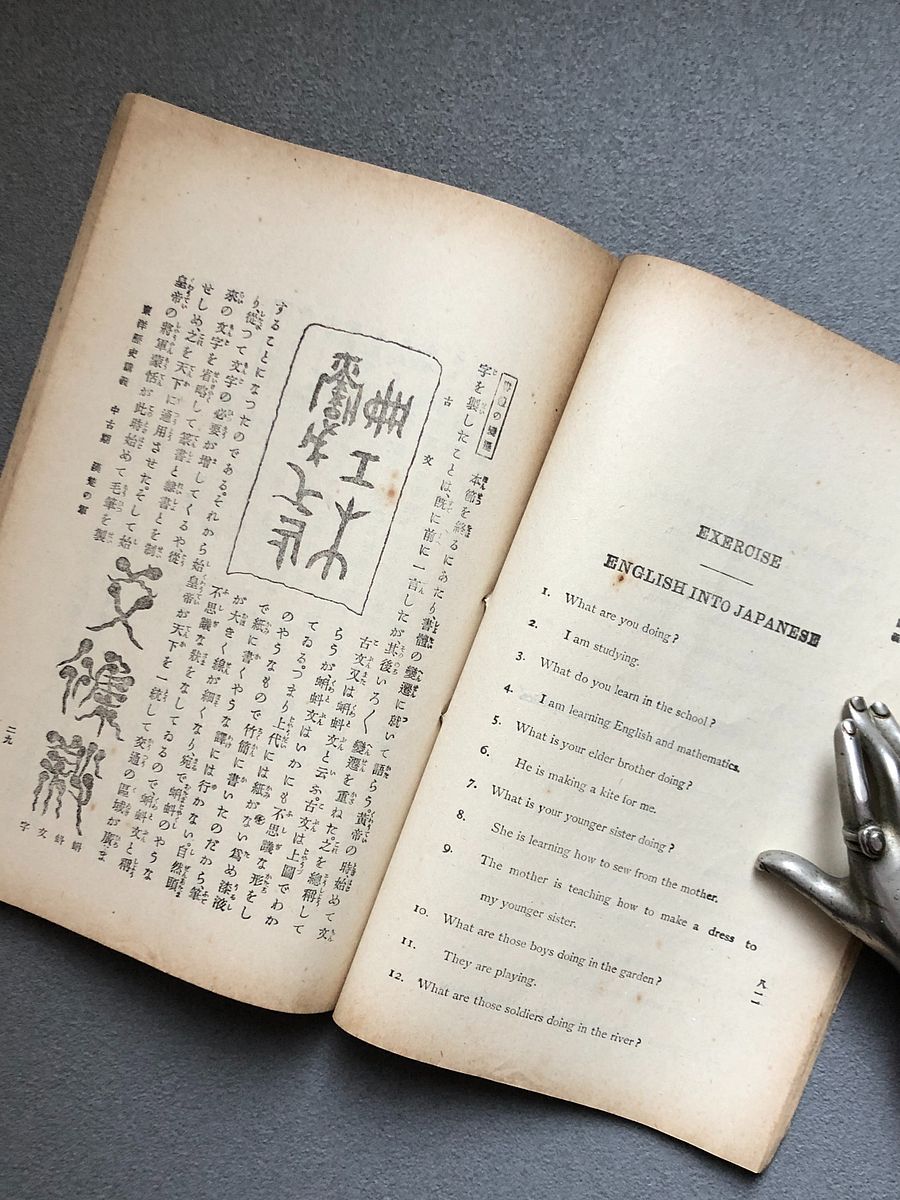 本節を終るにあたり書體の變遷に就いて語らう。黃帝の時始めて文
字を製したことは、既に前に一言したが其後いろ〱變遷を重ねた。之を總稱して
古文
古文又は蝌蚪文と云ふ。古文は上圖でわか
らうが蝌蚪文はいかにも不思議な形をし
てゐる。つまり上代には紙がない爲め漆液
のやうなもので竹簡に書いたのだから、筆
で紙に書くやうな譯には行かない。自然頭
が大きく線が細くなり、宛で蝌蚪のやうな
不思議な狀をなしてゐるので蝌蚪文と稱
することになつたのである。それから始皇帝が天下を一統して交通の區域が廣ま
り、從つて文字の必要が增してくるや從
來の文字を省略して篆書と隸書とを制
せしめ、之を天下に通用させた。そして始
皇帝の將軍蒙恬が此時始めて毛筆を製
蝌蚪文字
東洋歷史講義 中古期
二九
EXERCISE
ENGLISH INTO JAPANESE
1. What are you doing?
2. I am studying.
3. What do you learn in the school?
4. I am learning English and mathematics.
5. What is your elder brother doing?
6. He is making a kite for me.
7. What is your younger sister doing?
8. She is learning how to sew from the mother.
9. The mother is teaching how to make a dress to
my younger sister.
10. What are those boys doing in the garden?
11. They are playing.
12. What are those soldiers doing in the river?